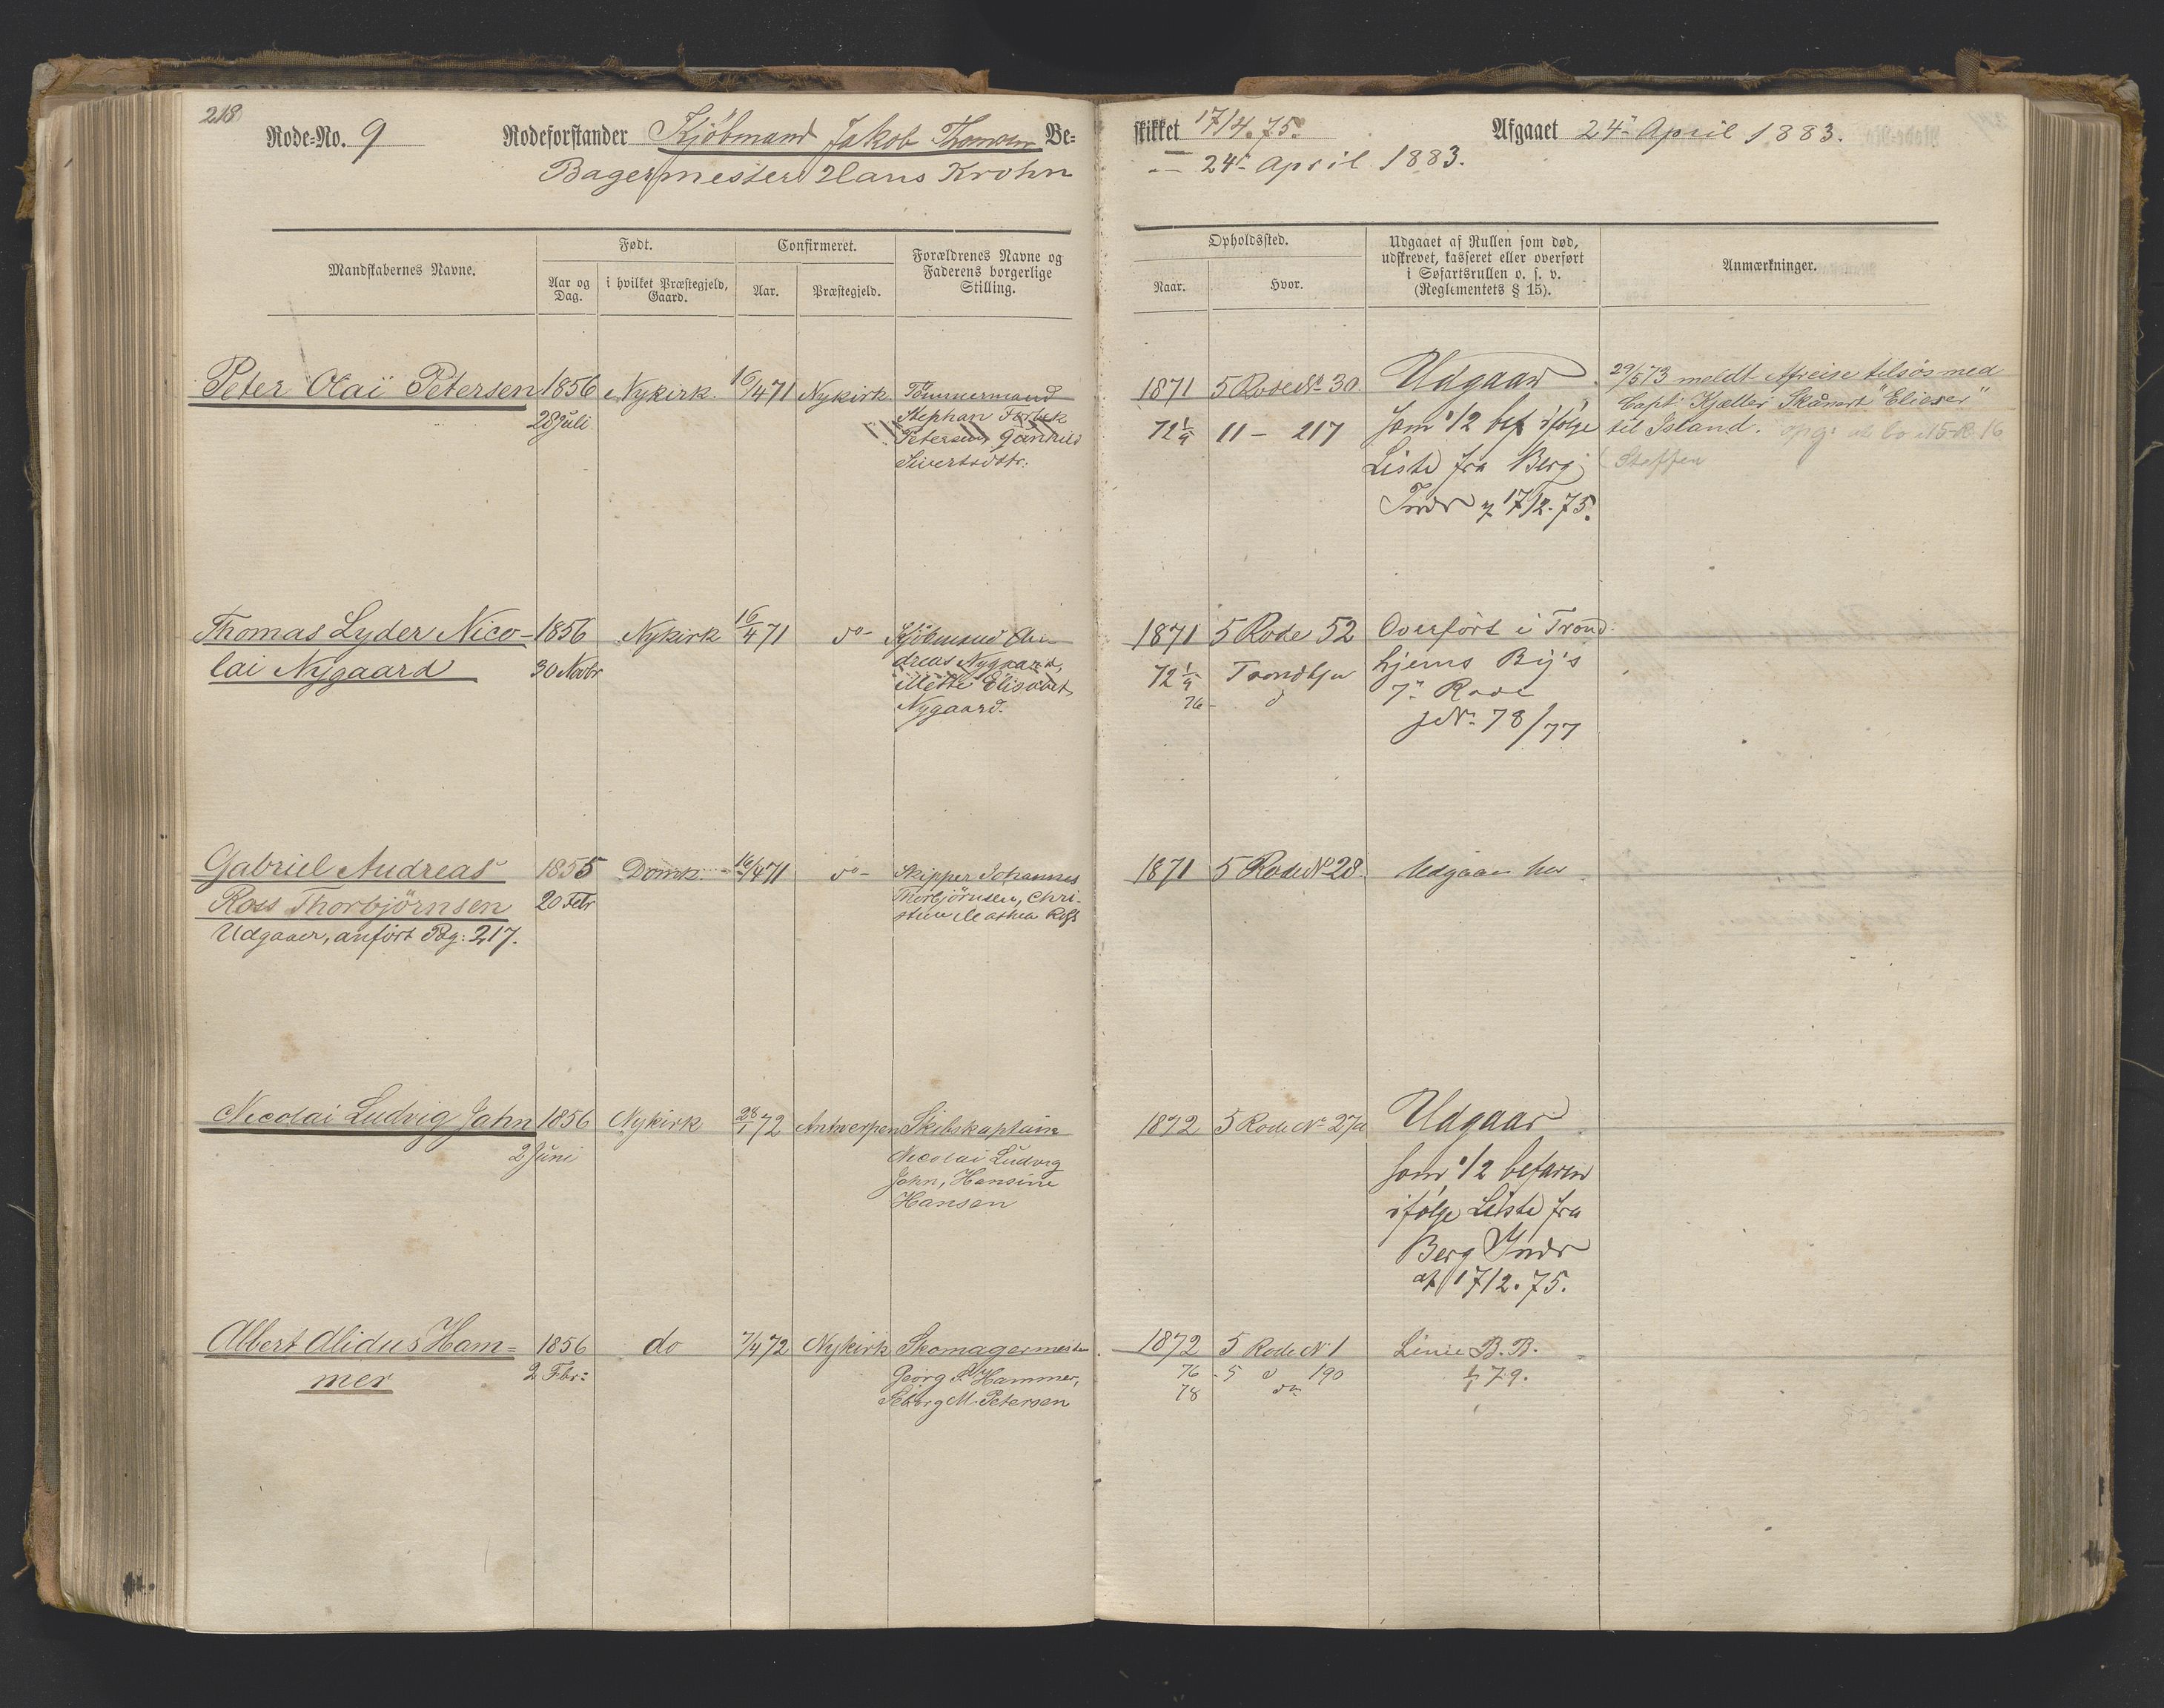 218
Rode-No. 9 Rodeforstander Kjöbmand Jakob Thomsen Be-
Bagermester Hans Krohn
skikket 17/4.75. Afgaaet 24de April 1883.
— 24de April 1883.
Mandskabernes Navne.
Født.
Aar og Dag.
i hvilket Præstegjeld, Gaard.
Confirmeret.
Aar.
Præstegjeld.
Forældrenes Navne og
Faderens borgerlige
Stilling.
Opholdssted.
Naar.
Hvor.
Udgaaet af Rullen som død,
udskrevet, kasseret eller overført
i Søfartsrullen o. s. v.
(Reglementets § 15).
Anmærkninger.
Peter Olai Petersen 1856 Nykirk. 16/4 71 Nykirk Tömmermand
28 Juli Stephan
Petersen, Gunhild
Sivertsdtr.
1871 5 Rode No 30. Udgaar 29/5 73 meldt Afreise tilsös med
Capt. Kjeller Skånert "Elieser"
72 1/9 11 — 217 som 1/2 bef ifölge til Island.
Liste fra Berg
Indr af 17/2.75.
Steffen
Thomas Lyder Nico- 1856 Nykirk 16/4 71 do Kjöbmand An-
lai Nygaard 30 Novbr dreas Nygaard,
Mette Elisabet
Nygaard.
1871 5 Rode 52 Overfört i Trond-
72 1/9 Trondhjm hjems By's
76 d 7de Rode
No 78/77
Gabriel Andreas 1855 Domk. 16/4 71 do Skipper Johannes
Ross Thorbjörnsen 20 Febr Thorbjörnsen, Chri-
Udgaaer, anfört Pag: 217. stine Marthea Ross
1871 5 Rode No 28. Udgaar her
Nicolai Ludvig Jahn 1856 Nykirk 28/1 72 Antwerpen Skibskaptain
2 Juni Nicolai Ludvig
Jahn, Hansine
Hansen
1872 5 Rode No 27a Udgaar
som 1/2 befaren
ifölge Liste fra
Berg Indr
af 17/2.75.
Albert Alidus Ham- 1856 do 7/4 72 Nykirk Skomagermester
mer 2 Fbr: Georg P. Hammer,
M. Petersen
1872 5 Rode No 1 Linie B.B.
76 5 d 190 1/1 79.
78 do